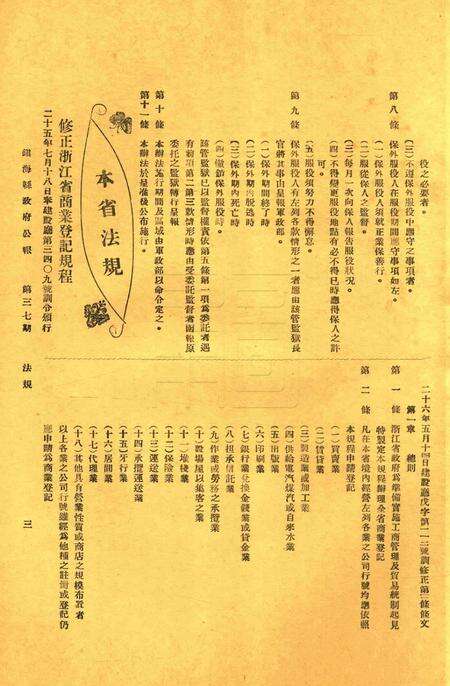 役之必要者。
(三)不遵保外服役中應守之事項者。
第八條 保外服役人在服役期間應守事項如左。
(一)保外服役人須就正業保善行。
(二)服從保人之監督。
(三)每月一次向保人報告服役狀況。
(四)不得變更服役地點有必不得已時應得保人之許
可。
(五)服役必努力不得懈怠。
第九條 保外服役人有左列各款情形之一者應由該管監獄長
官將其事由呈報軍政部。
(一)保外期間終了時
(二)保外期內脫逃時
(三)保外期內死亡時
(四)撤銷保外服役時
該管監獄已以監督權責依第五條第一項為委託者遇
有前項第二第三款情形時應由受委託監督者函報原
委托之監獄轉行呈報
第十條 本辦法施行期間及區域由軍政部以命令定之。
第十一條 本辦法於呈准後公布施行。
本省法規
修正浙江省商業登記規程
二十五年七月十八日奉建設廳第二四〇九號訓令頒行
二十六年五月十四日建設廳戊字第二一二號訓令修正第二條條文
第一章 總則
第一條 浙江省政府為準備實施工商管理及貿易統制起見
特製定本規程辦理全省商業登記
第二條 凡在本省境內經營左列各業之公司行號均應依照
本規程申請登記
(一)買賣業
(二)賃貸業
(三)製造業或加工業
(四)供給電气煤汽或自來水業
(五)出版業
(六)印刷業
(七)銀行業兌換金錢業或貸金業
(八)担承信託業
(九)作業或勞務之承攬業
(十)設場屋以集客之業
(十一)堆棧業
(十二)保險業
(十三)運送業
(十四)承攬運送業
(十五)牙行業
(十六)居間業
(十七)代理業
(十八)其他具有營業性質或商店之規模布置者
以上各業之公司行號雖經為他種之註冊或登記仍
應申請為商業登記
鎮海縣政府公報 第三七期 法規 三